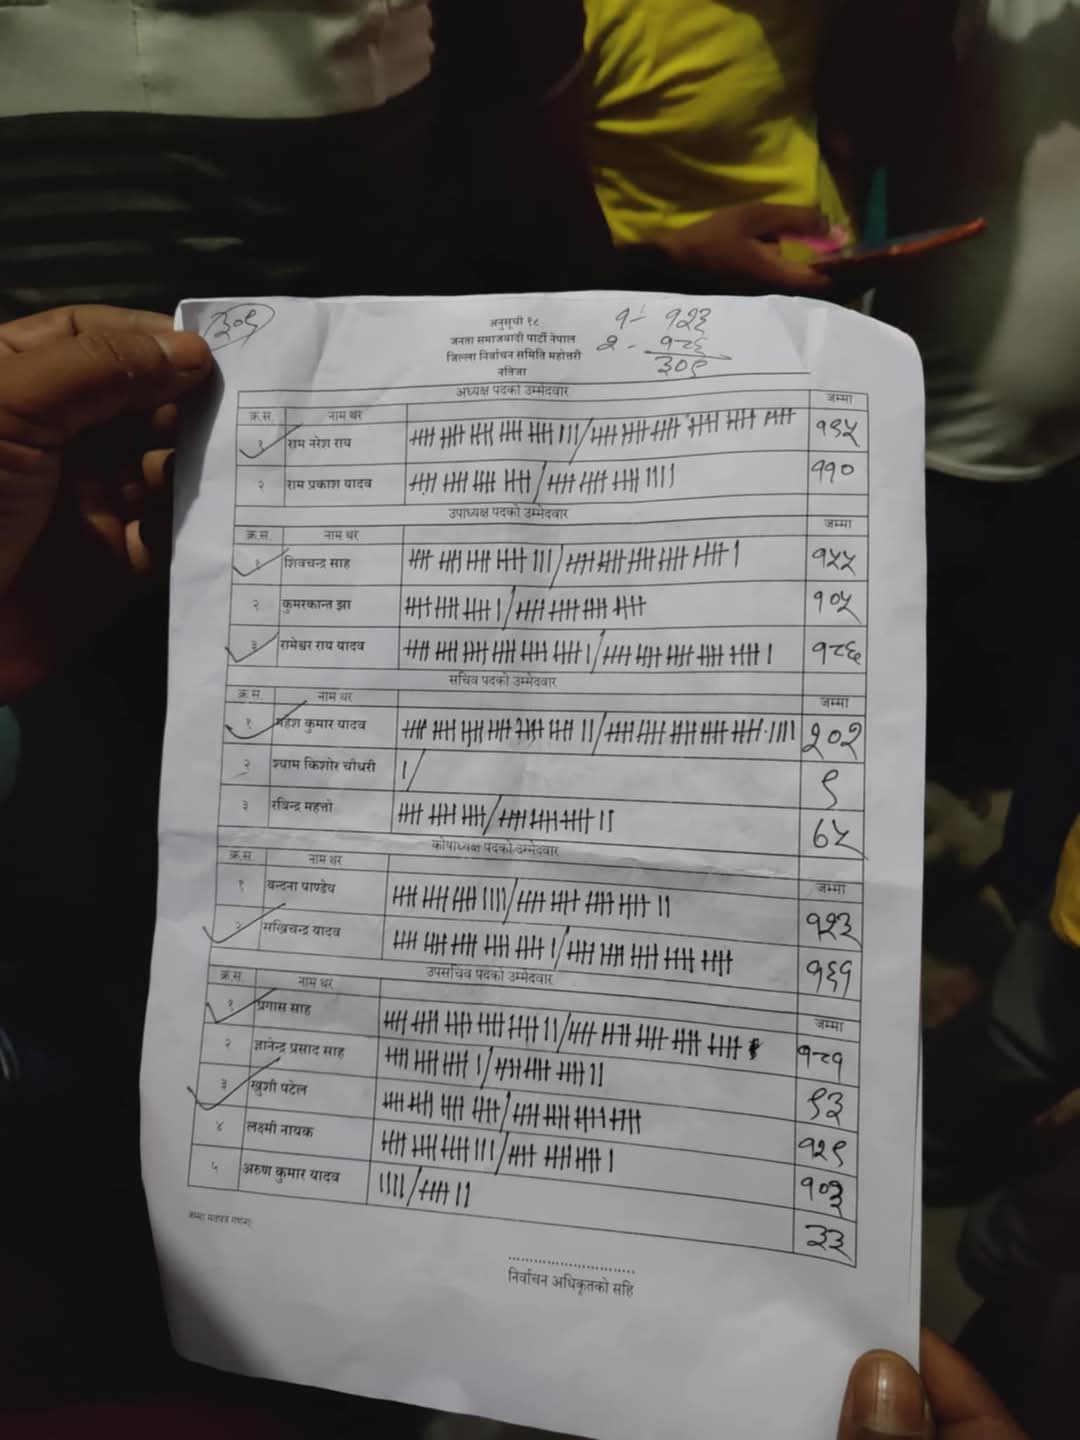 ३०९
अनुसूची १८
जनता समाजवादी पार्टी नेपाल
जिल्ला निर्वाचन समिति महोत्तरी
नतिजा
१- १२३
२- १८६
३०९
अध्यक्ष पदको उम्मेदवार
क्र.स. नाम थर जम्मा
१ राम नरेश राय १९५
२ राम प्रकाश यादव ११०
उपाध्यक्ष पदको उम्मेदवार
क्र.स. नाम थर जम्मा
१ शिवचन्द्र साह १५५
२ कुमरकान्त झा १०५
३ रामेश्वर राय यादव १८६
सचिव पदको उम्मेदवार
क्र.स. नाम थर जम्मा
१ महेश कुमार यादव २०२
२ श्याम किशोर चौधरी ९
३ रविन्द्र महत्तो ७५
कोषाध्यक्ष पदको उम्मेदवार
क्र.स. नाम थर जम्मा
१ वन्दना पाण्डेय १२३
२ सखिचन्द्र यादव १६१
उपसचिव पदको उम्मेदवार
क्र.स. नाम थर जम्मा
१ प्रगास साह १८१
२ ज्ञानेन्द्र प्रसाद साह ९३
३ खुशी पटेल १२९
४ लक्ष्मी नायक १०३
५ अरुण कुमार यादव ३३
जम्मा मतपत्र गणना:
निर्वाचन अधिकृतको सहि